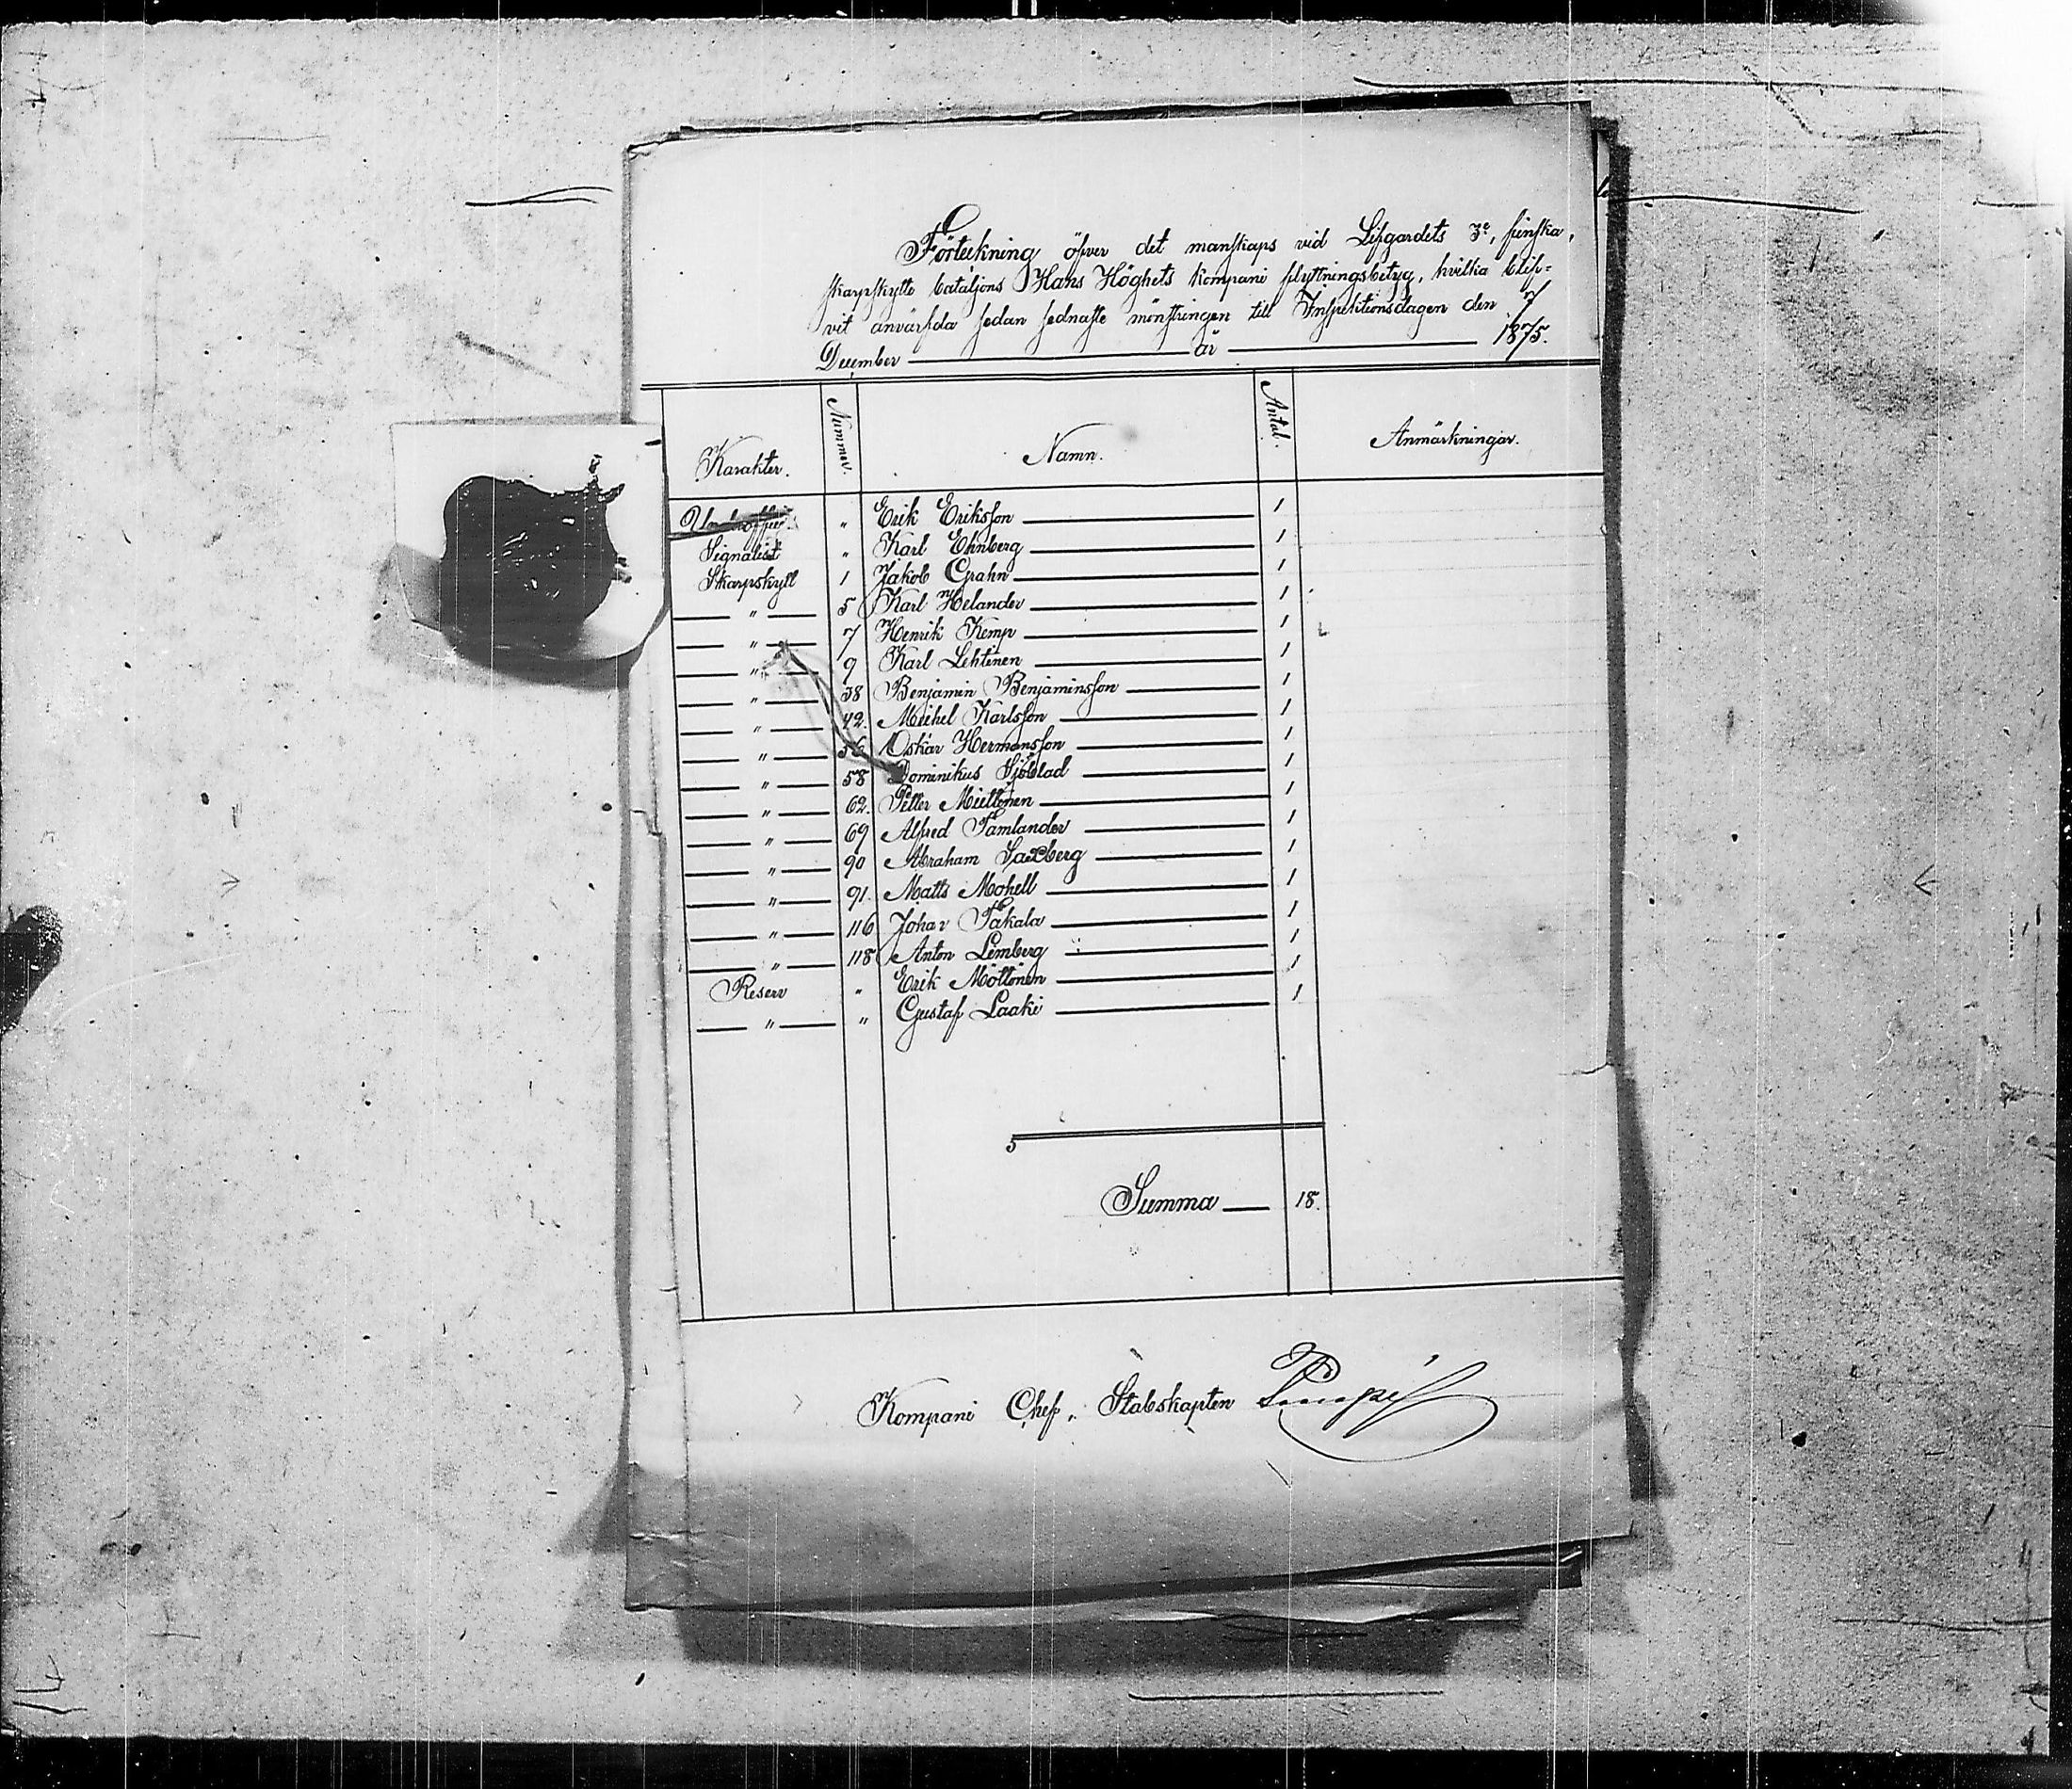 Förteckning öfver det manskaps vid Lifgardets 3e, finska,
skarpskytte bataljons Hans Höghets kompani flyttningsbetyg, hvilka blif-
vit anvärfda sedan sednaste mönstringen till Inspektionsdagen den 7
December — år — 1875.
Karakter. Nummer. Namn. Antal. Anmärkningar.
Underofficer. " Erik Eriksson — 1
Signalist " Karl Ehnberg — 1
Skarpskytt 1 Jakob Grahn — 1
— " — 5 Karl Helander — 1
— " — 7 Henrik Kemp — 1
— " — 9 Karl Lehtinen — 1
— " — 38 Benjamin Benjaminsson — 1
— " — 42. Mickel Karlsson — 1
— " — 56 Oskar Hermansson — 1
— " — 58 Dominikus Sjöblad — 1
— " — 62. Petter Miettinen — 1
— " — 69 Alfred Tamlander — 1
— " — 90 Abraham Saxberg — 1
— " — 91. Matts Mohell — 1
— " — 116 Johan Takala — 1
— " — 118 Anton Lemberg — 1
Reserv " Erik Möttönen — 1
— " — " Gustaf Laaki — 1
Summa — 18.
Kompani Chef, Stabskapten